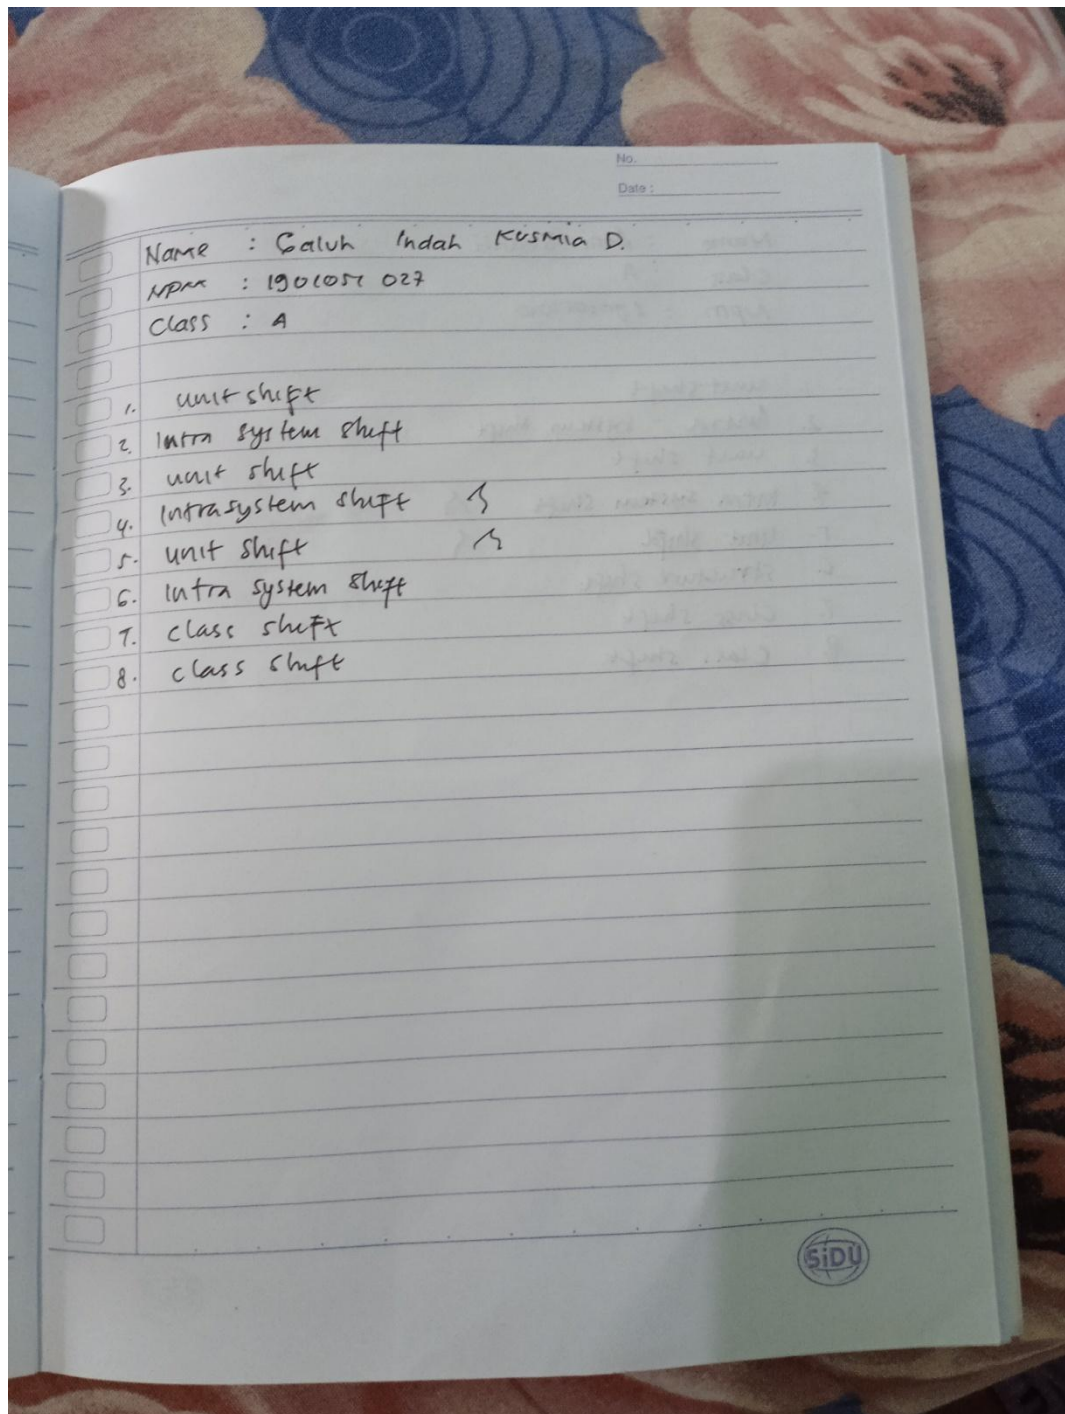 No.
Date :
Name : Galuh Indah Kusmia D.
NPM : 027
Class : A
1. unit shift
2. Intra system shift
3. unit shift
4. Intrasystem shift
5. unit shift
6. Intra system shift
7. class shift
8. class shift
SiDU